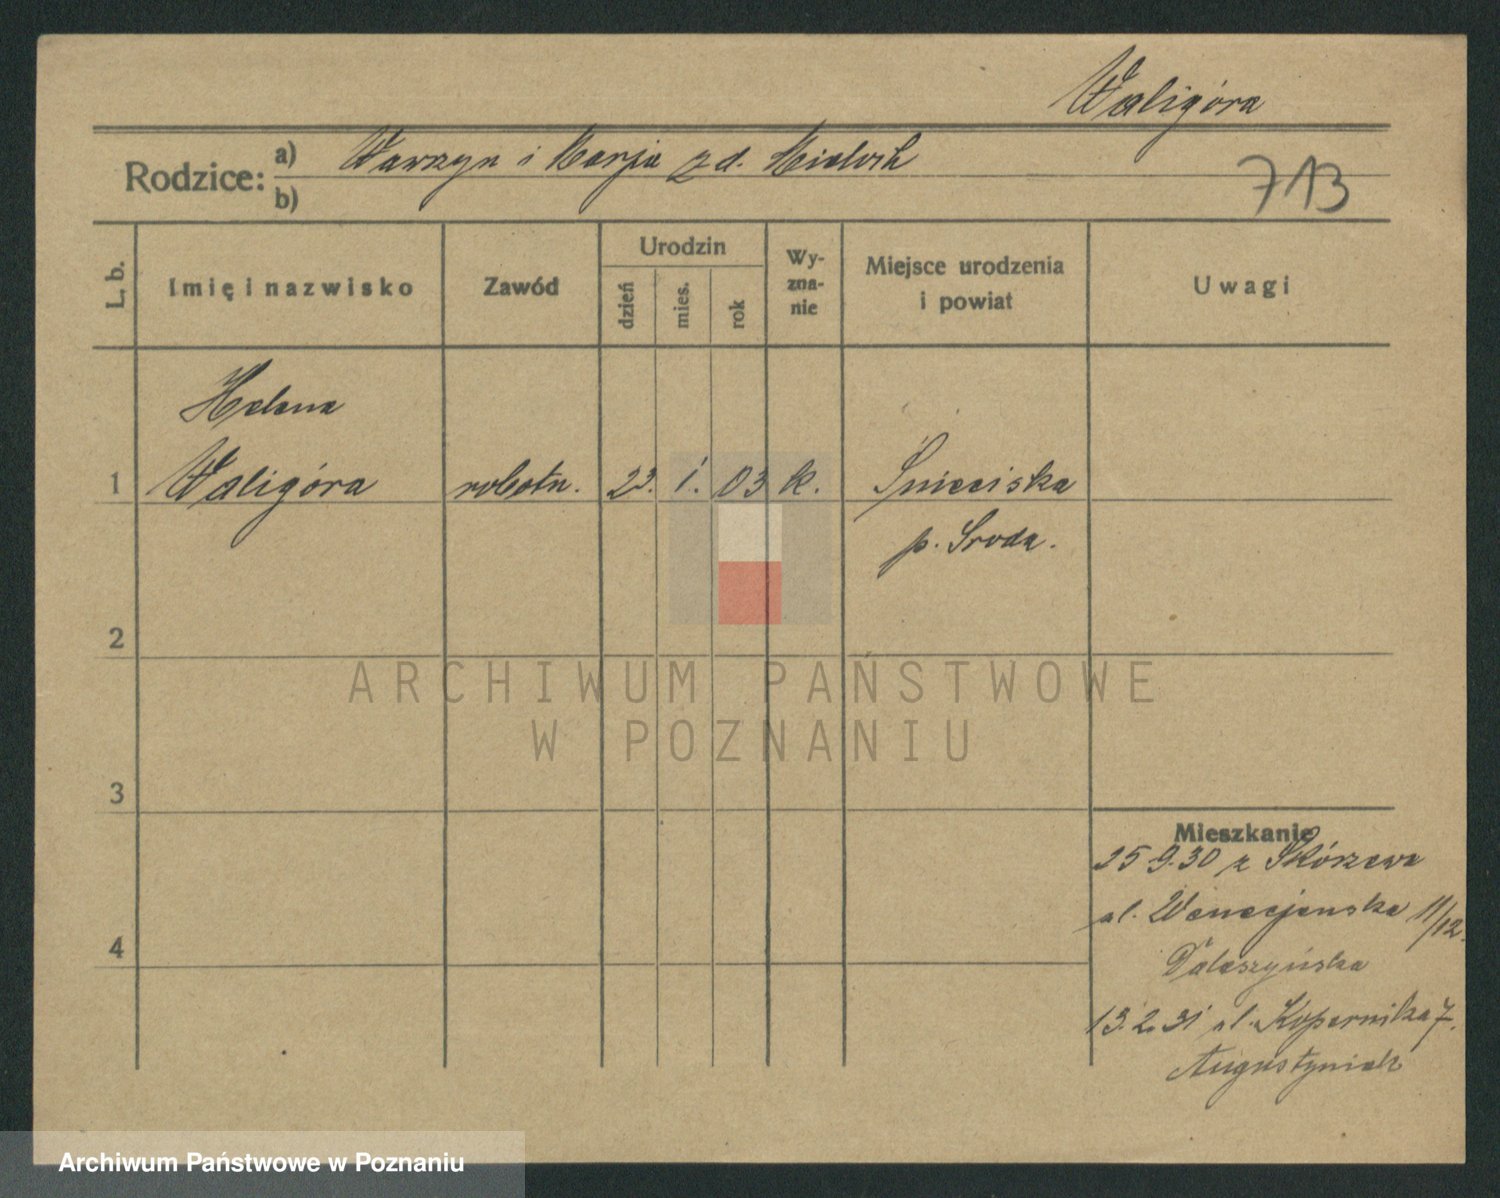 Waligóra
Rodzice: a) Wawrzyn i Marja z d. Mieloch
b)
713
L. b.
Imię i nazwisko
Zawód
Urodzin
dzień
mies.
rok
Wy-
zna-
nie
Miejsce urodzenia
i powiat
Uwagi
Helena
1 Waligóra robotn. 23. 1. 03 k. Śnieciska
p. Środa.
2
3
4
ARCHIWUM PAŃSTWOWE
W POZNANIU
Mieszkanie
25 9.30 z Skórzewa
ul. Wenecjanska 11/12.
Talaszyńska
13.2.31 ul. Kopernika 7.
Augustyniak
Archiwum Państwowe w Poznaniu